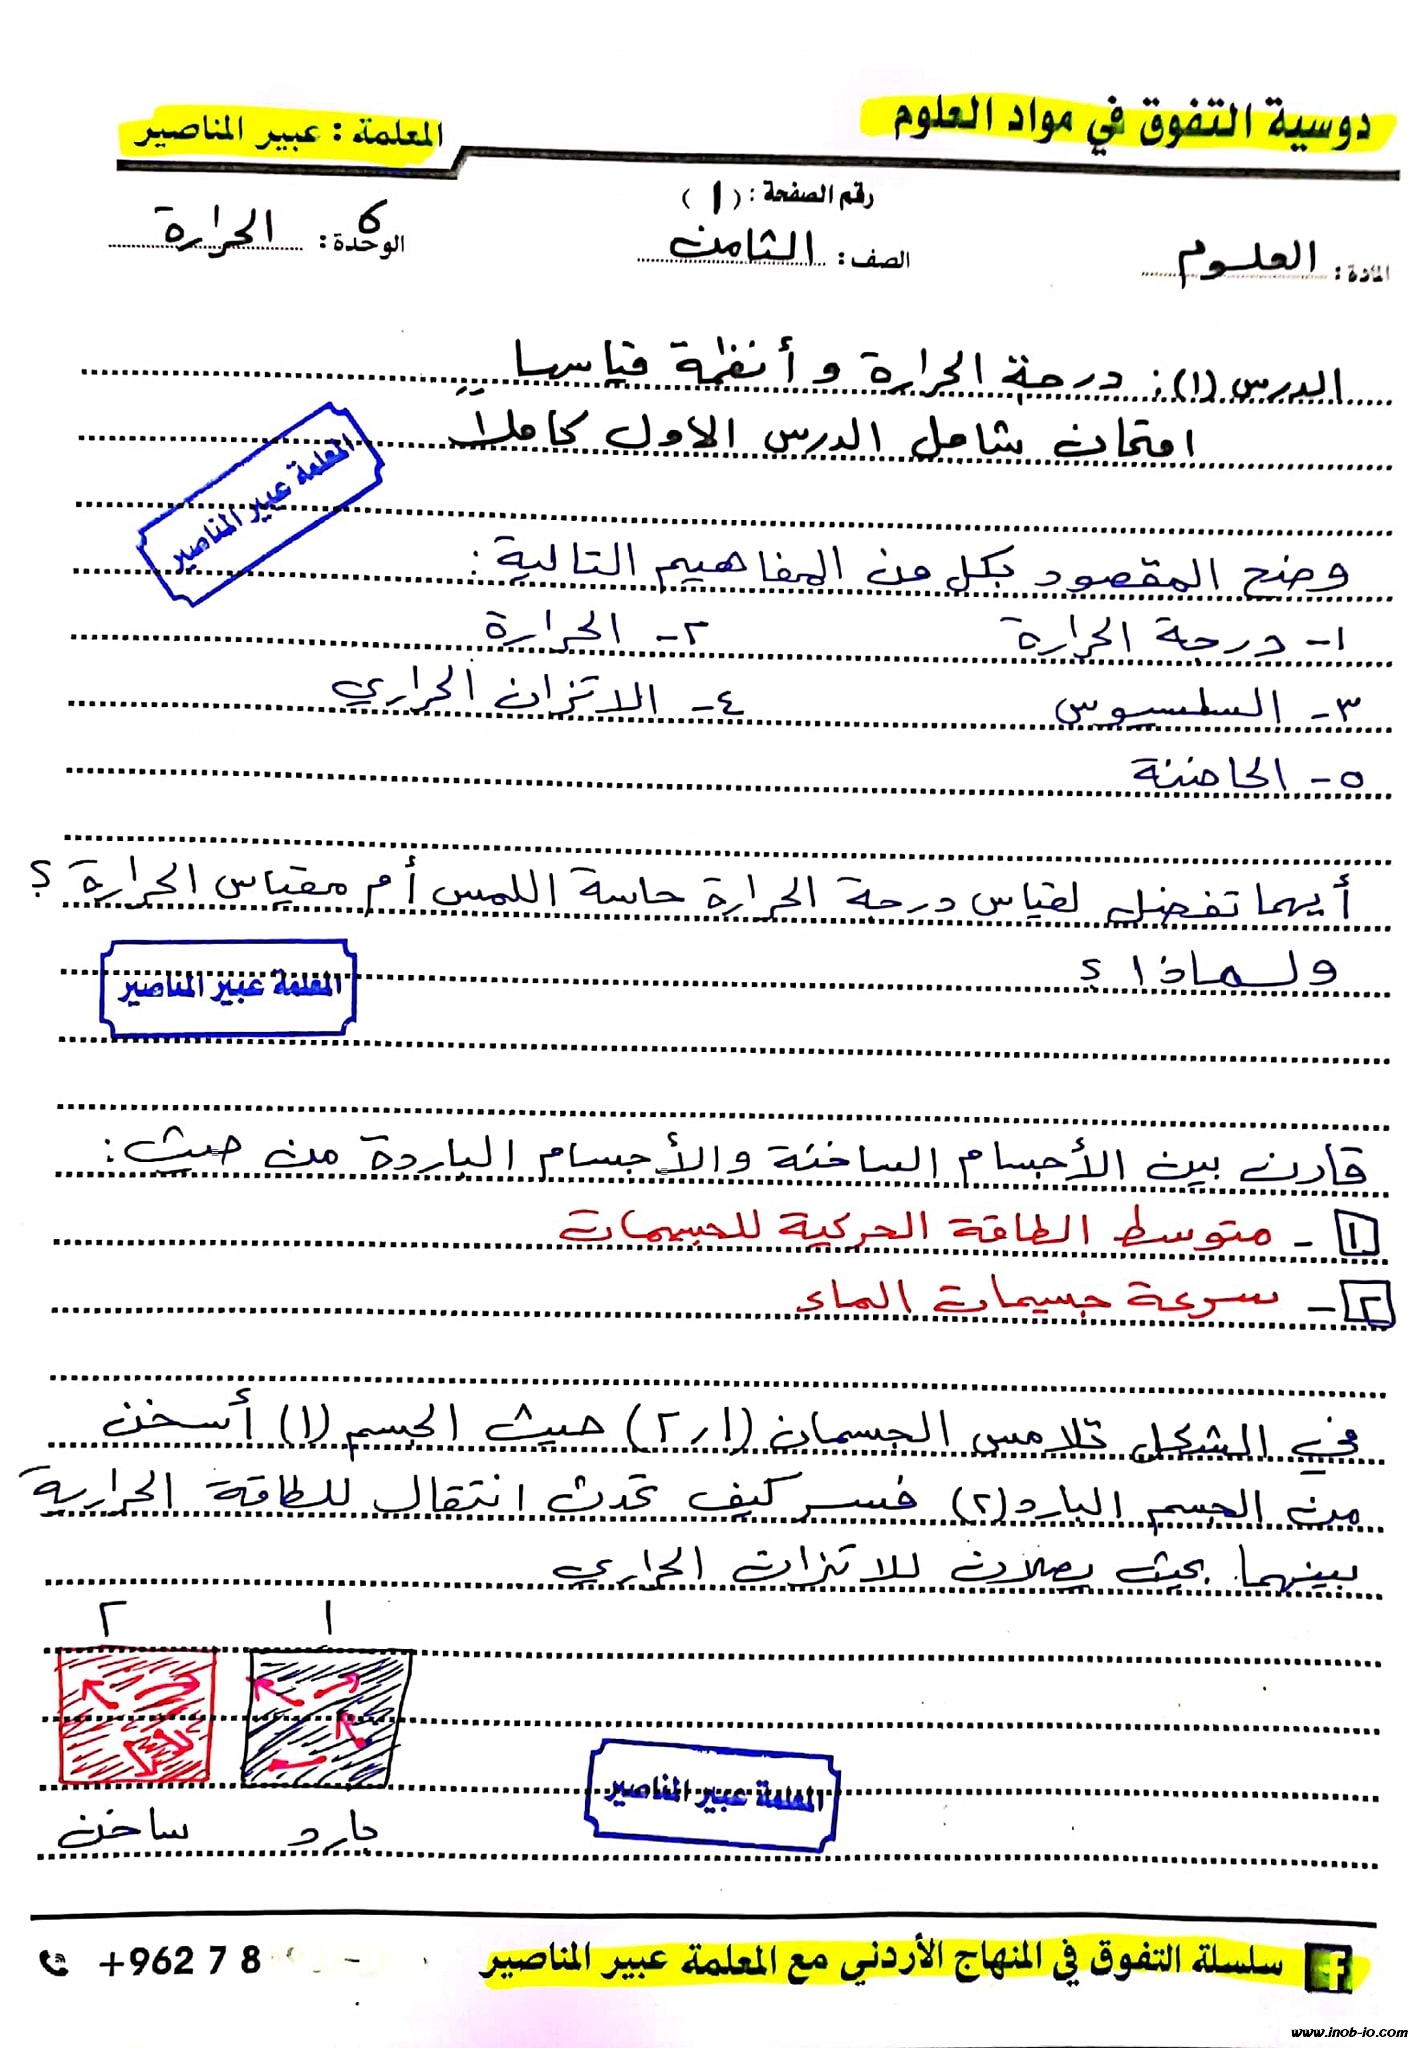 دوسية التفوق في مواد العلوم
المعلمة : عبير المناصير
رقم الصفحة : (١)
المادة : العلوم
الصف : الثامن
الوحدة : ٦ الحرارة
الدرس (١) : درجة الحرارة و أنظمة قياسها
امتحان شامل الدرس الاول كاملاً
المعلمة عبير المناصير
وضح المقصود بكل من المفاهيم التالية :
١- درجة الحرارة ٢- الحرارة
٣- السلسيوس ٤- الاتزان الحراري
٥- الحاضنة
أيهما تفضل لقياس درجة الحرارة حاسة اللمس أم مقياس الحرارة ؟
ولماذا ؟
المعلمة عبير المناصير
قارن بين الأجسام الساخنة والأجسام الباردة من حيث :
١ - متوسط الطاقة الحركية للجسيمات
٢ - سرعة جسيمات الماء
في الشكل تلامس الجسمان (١ر٢) حيث الجسم (١) أسخن
من الجسم البارد (٢) فسر كيف تحدث انتقال للطاقة الحرارية
بينهما بحيث يصلان للاتزان الحراري
١ ٢
بارد ساخن
المعلمة عبير المناصير
سلسلة التفوق في المنهاج الأردني مع المعلمة عبير المناصير
+962 7 8
www.inob-io.com